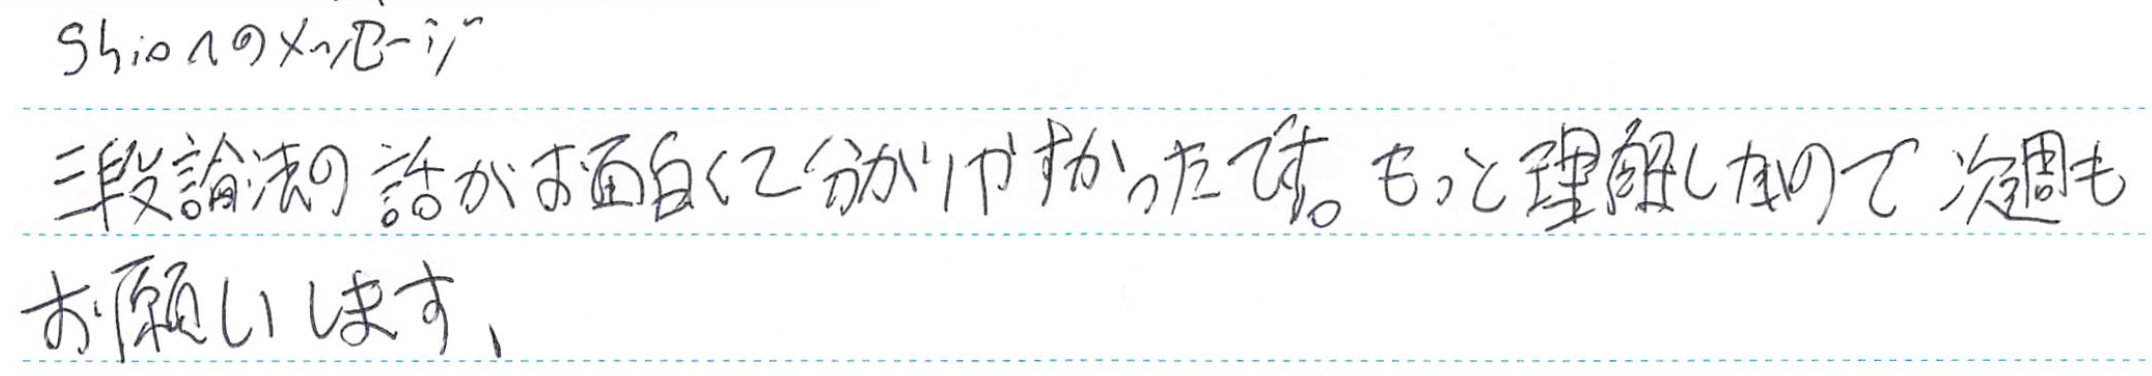 Shioへのメッセージ
三段論法の話がお面白くて分かりやすかったです。もっと理解したいので次週も
お願いします、